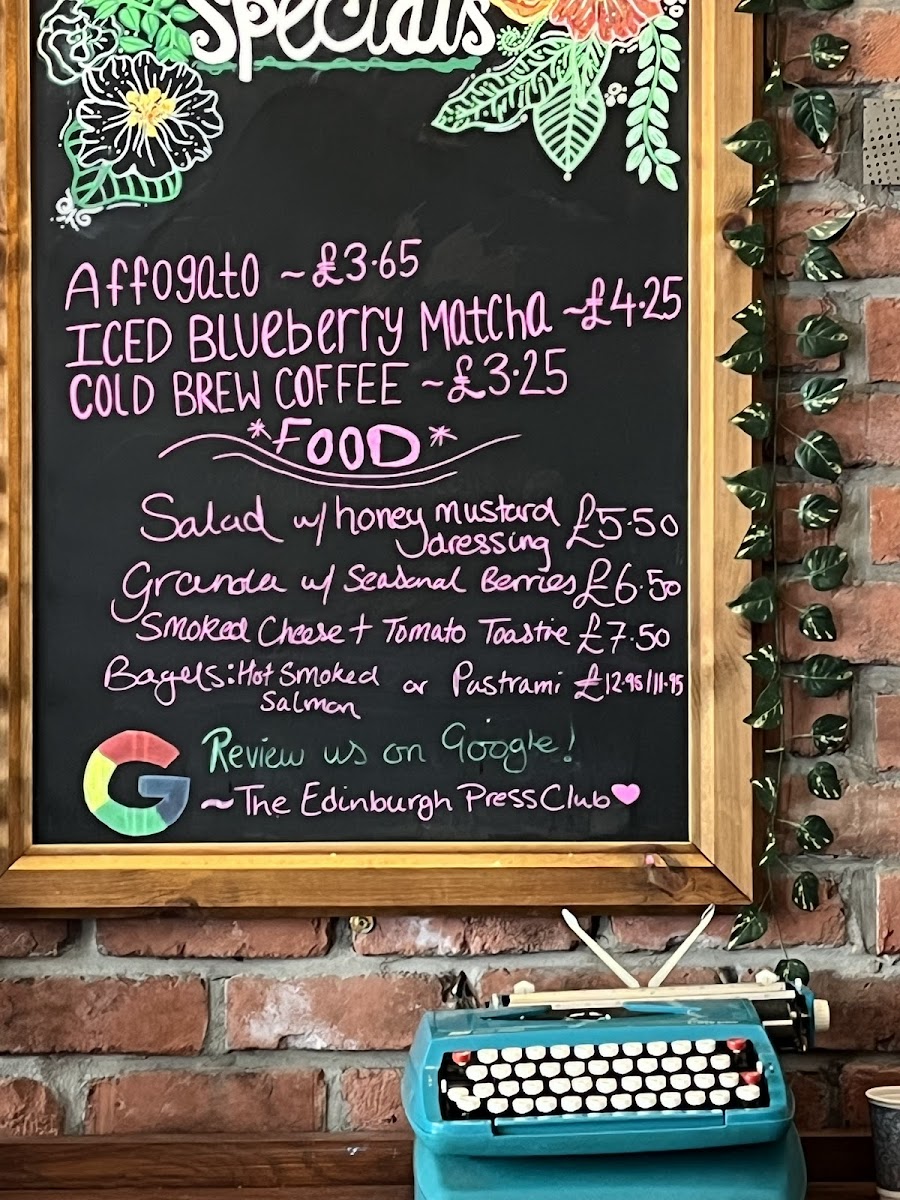 Specials
Affogato ~£3.65
ICED BLUEberry Matcha ~£4.25
COLD BREW COFFEE ~£3.25
*FOOD*
Salad w/ honey mustard £5.50
dressing
Granola w/ Seasonal Berries £6.50
Smoked Cheese + Tomato Toastie £7.50
Bagels: Hot Smoked or Pastrami £12.95/11.95
Salmon
G Review us on Google!
~The Edinburgh Press Club